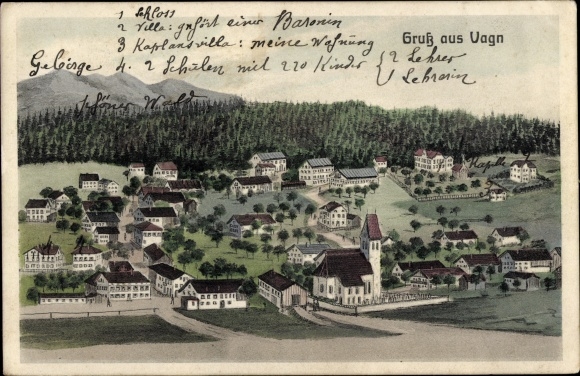 1 Schloss
2 Villa: gehört einer Baronin
3 Kaplansvilla: meine Wohnung
Gebirge 4. 2 Schulen mit 220 Kinder { 2 Lehrer
1 Lehrerin
Gruß aus Vagn
schöner Wald
Kapelle